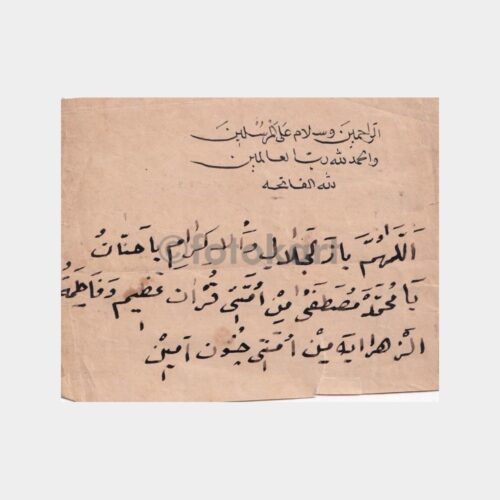 الراحمين وسلام على المرسلين
والحمد لله رب العالمين
لله الفاتحه
اَللّٰهُمَّ يا ذالجلالِ والاكرامِ يا حنّانُ
يا مُحَمَّد مُصْطَفٰى مِنْ اُمَّتِى قُرْاٰن عَظِيم وَفَاطِمَةُ
الزهرا ايه مِنْ اُمَّتِى جُنُون آمِينْ
©fotokart